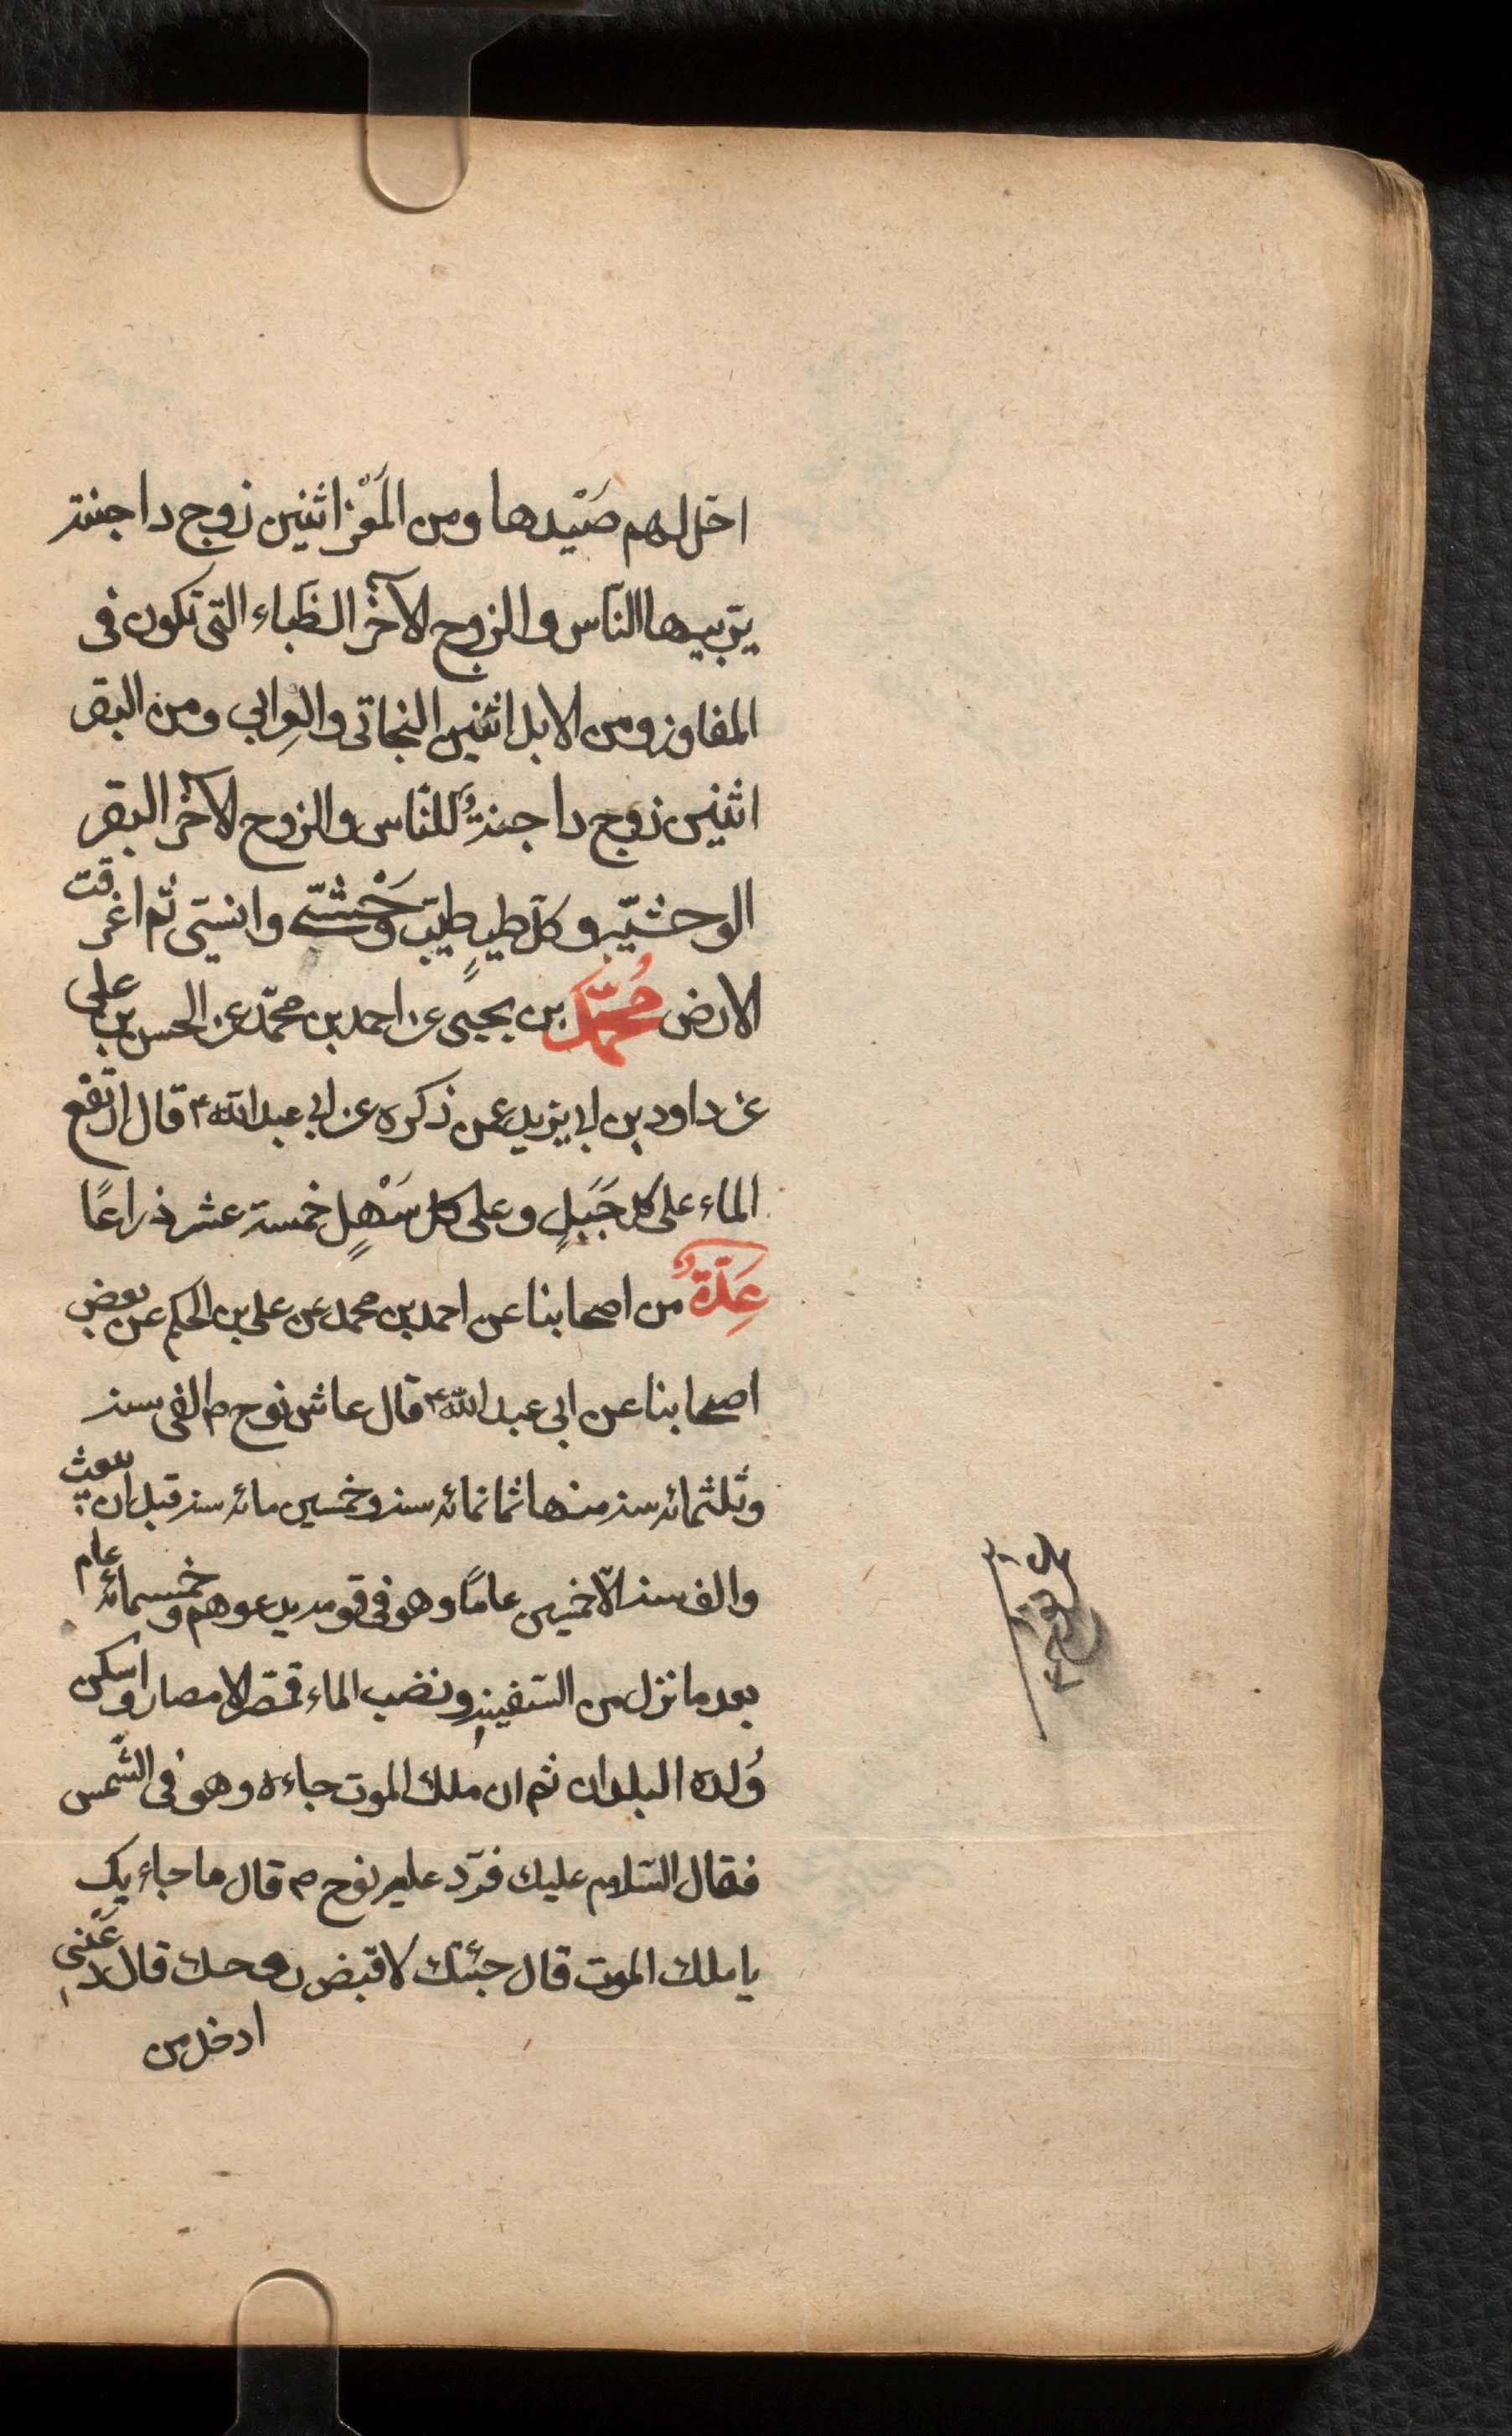 احل لهم صَيْدها ومن المَعْز اثنين زوج داجنة
يربيها النّاس والزوج الآخر الظباء التى تكون فى
المفاوز ومن الابل اثنين البخاتى والعِرابى ومن البقر
اثنين زوج داجنةٌ للنّاس والزوج الآخر البقر
الوحشيّه وكلّ طيرٍ طيّب وَحْشىّ وانسىّ ثم اغرقت
الارض مُحمّد بن يحيى عن احمد بن محمّد عن الحسن بن على
عن داود بن ابى يزيد عمن ذكره عن ابى عبد الله ع قال ارتفع
الماء على كل جَبَلٍ وعلى كل سَهْلٍ خمسة عشر ذراعًا
عِدّةٌ من اصحابنا عن احمد بن محمد عن على بن الحكم عن بعض
اصحابنا عن ابى عبد الله ع قال عاش نوح م الفى سنه
وثلثمائه سنه منها ثمانمائه سنه وخمسين مائه سنه قبل ان يبعث
والف سنه الّا خمسين عامًا وهو فى قومه يدعوهم وخمسمائه عام
بعد ما نزل من السّفينهِ ونضب الماء فمصّر الامصار واسكن
وُلده البلدان ثم ان ملك الموت جاءه وهو فى الشّمس
فقال السّلام عليك فردّ عليه نوح م قال ما جاء بك
يا ملك الموت قال جئتك لاقبض روحك قال دَعْنى
ادخل من